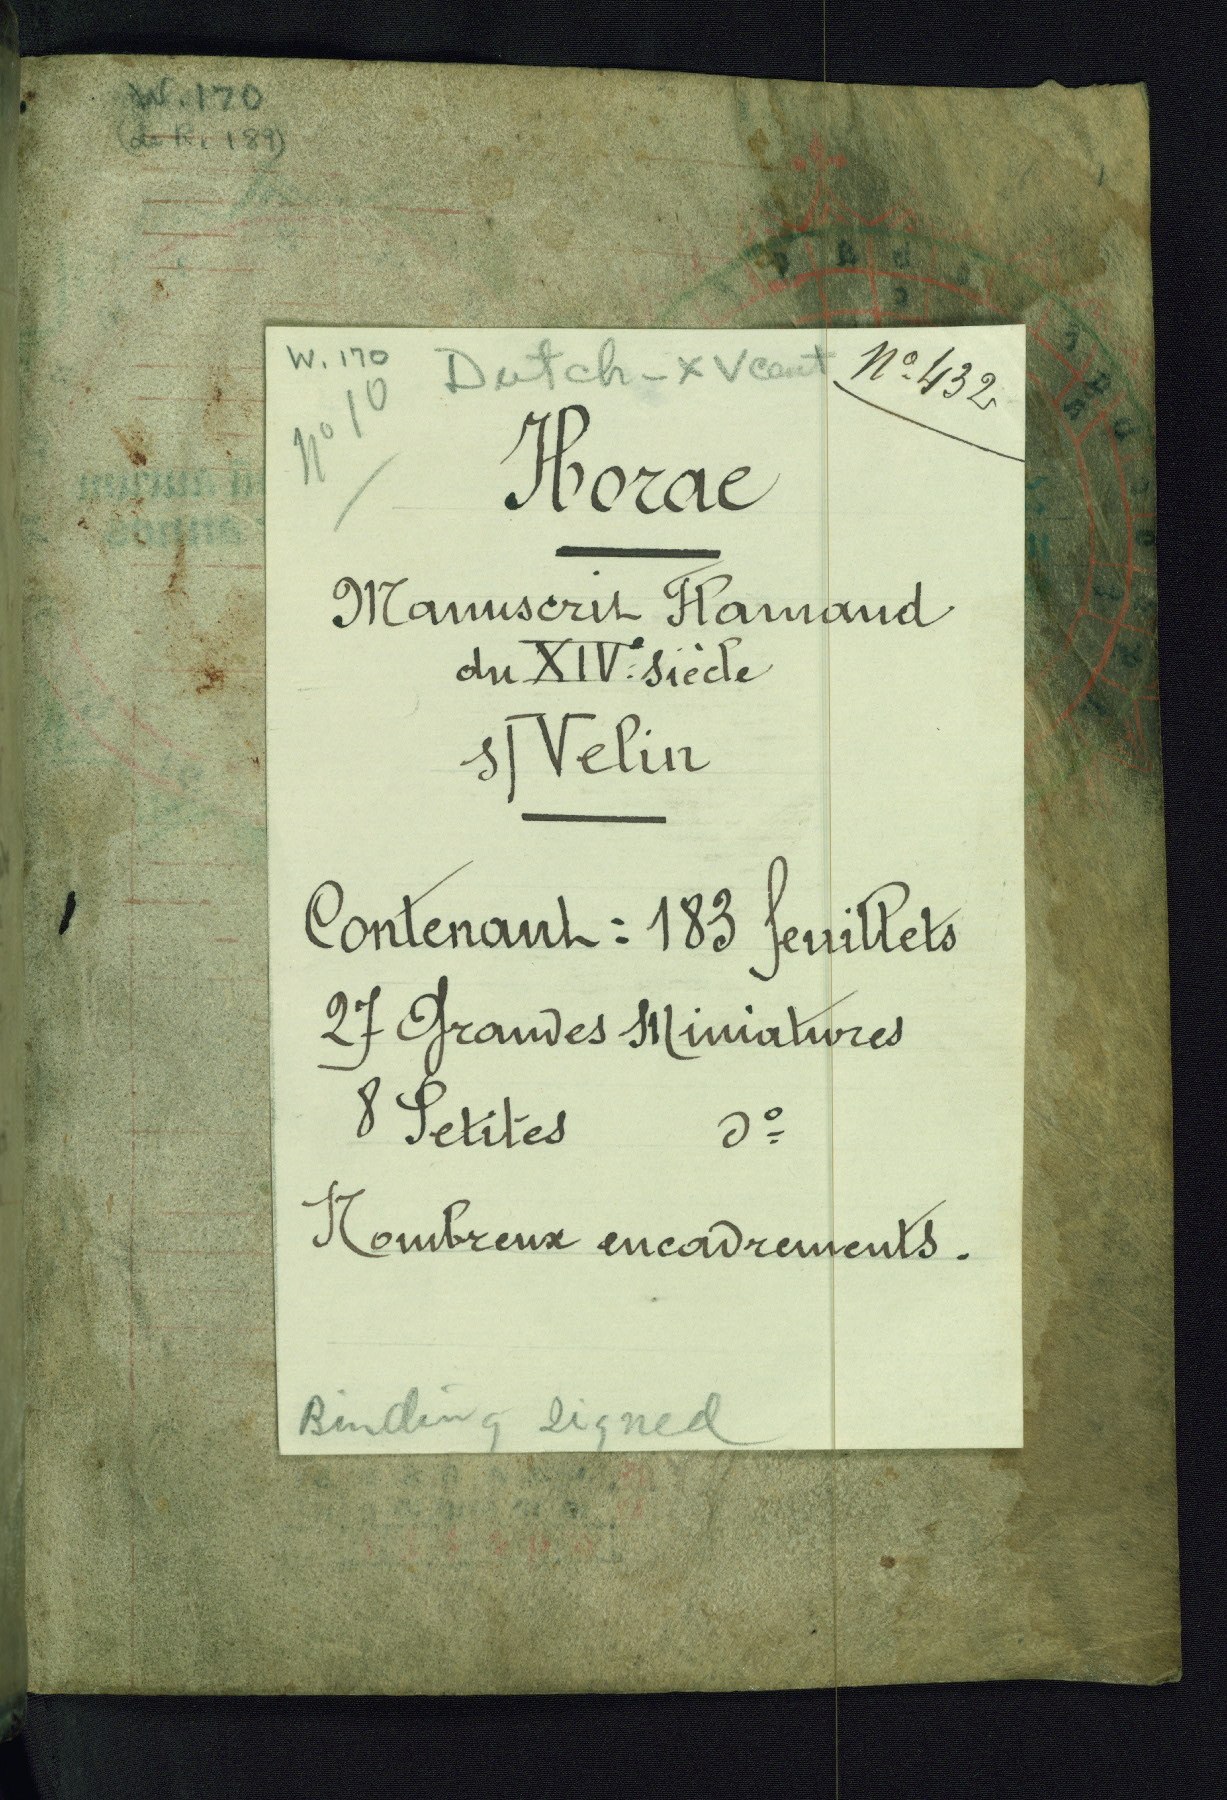 W. 170
(de R. 189)
W. 170
Dutch - XV cent
Nº 432
Nº 10
Horae
Manuscrit Flamand
du XIVe siècle
s/ Velin
Contenant : 183 feuillets
27 Grandes Miniatures
8 Petites dº
Nombreux encadrements.
Binding signed